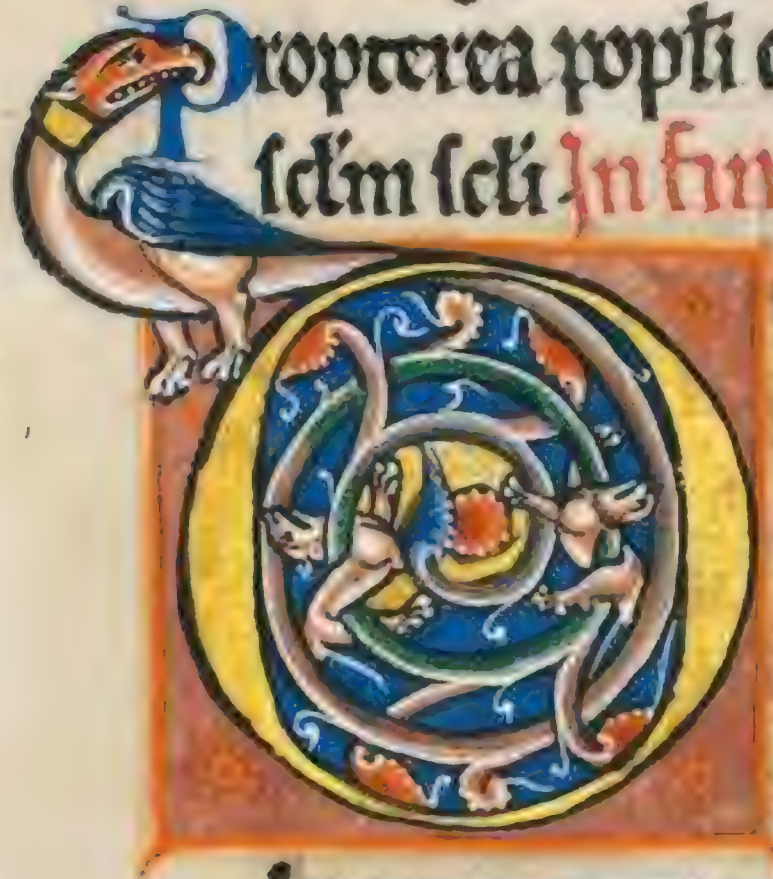 Propterea popłi
ſcłm ſcłi In fin
D